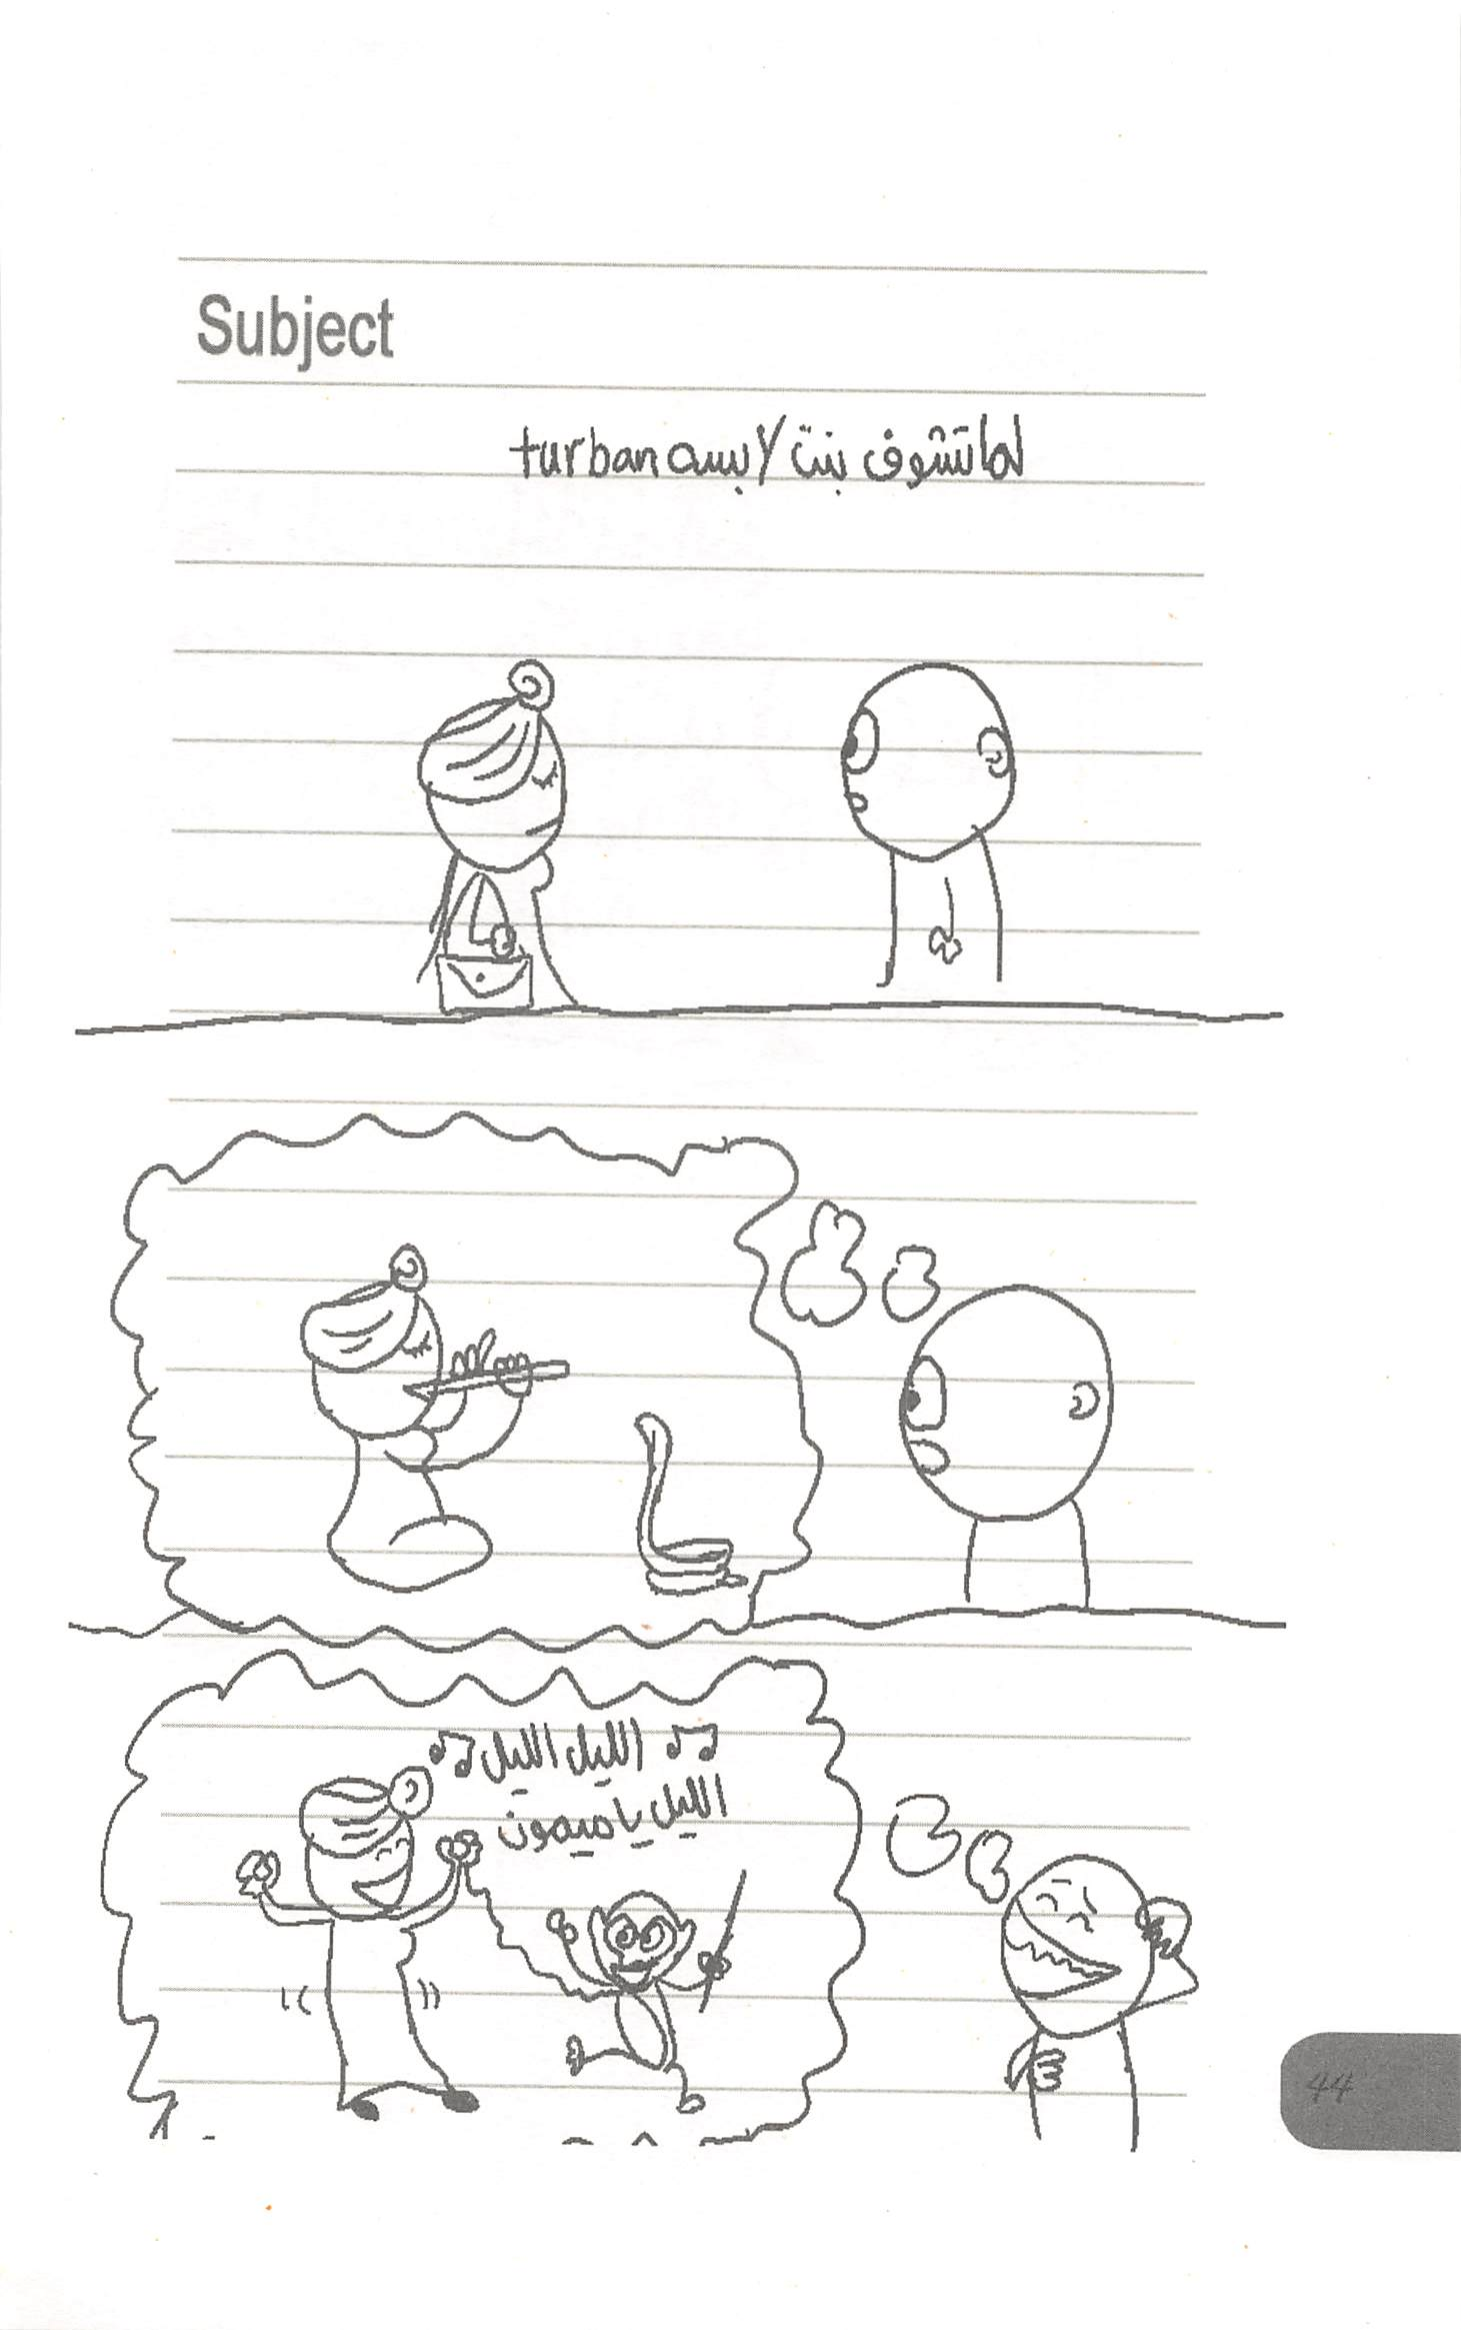 Subject
لما تشوف بنت لابسه turban
الليل الليل
الليل يا ميمون
44